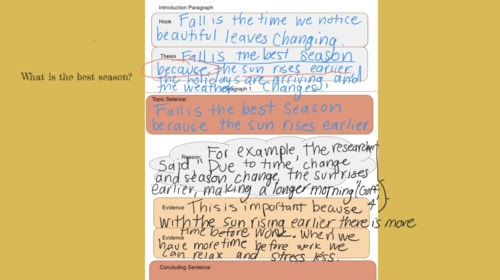 What is the best season?
Introduction Paragraph
Hook
Fall is the time we notice
beautiful leaves changing.
Thesis
Fall is the best season
because, the sun rises earlier,
the holidays are arriving and
the weather changes.
Paragraph 1
Topic Setence:
Fall is the best Season
because the sun rises earlier.
Reason
For example, the researcher
said "Due to time change
and season change, the sun rises
earlier, making a longer morning"(Cuff,
4)
Evidence
This is important because
with the sun rising earlier there is more
time before work. When we
Evidence
have more time before work we
can relax and stress less.
Concluding Sentence